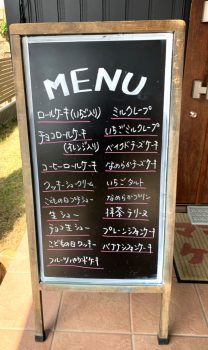 MENU
ロールケーキ(いちご入り)
チョコロールケーキ
(オレンジ入り)
コーヒーロールケーキ
クッキーシュークリーム
こどもの日プチシュー
生シュー
チョコ生シュー
こどもの日クッキー
フルーツパウンドケーキ
ミルクレープ
いちごミルクレープ
ベイクドチーズケーキ
なめらかチーズケーキ
いちごタルト
なめらかプリン
抹茶テリーヌ
プレーンシフォンケーキ
バナナシフォンケーキ